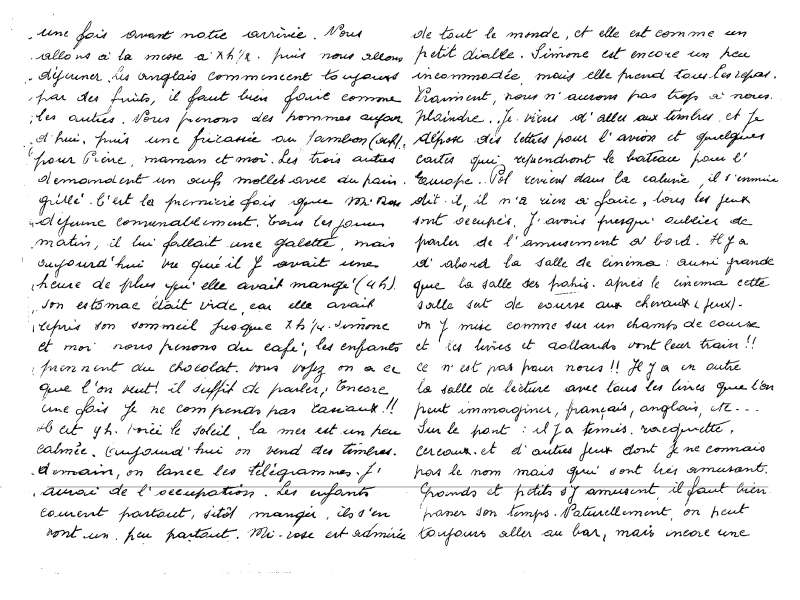 une fois avant notre arrivée. Nous
allons à la messe à 7h1/2. puis nous allons
déjeuner. Les anglais commencent toujours
par des fruits, il faut bien faire comme
les autres. Nous prenons des pommes aujour
d'hui, puis une fricassée au jambon (œufs),
pour Pierre, maman et moi. Les trois autres
demandent un œuf mollet avec du pain
grillé. C'est la première fois que Mi-Rose
déjeune convenablement. Tous les jours
matin, il lui fallait une galette, mais
aujourd'hui vu qu'il y avait une
heure de plus qu'elle avait mangé (4h).
Son estomac était vide, car elle avait
repris son sommeil jusque 7h1/4. Simone
et moi nous prenons du café, les enfants
prennent du chocolat. Vous voyez on a ce
que l'on veut! il suffit de parler, Encore
une fois je ne comprends pas Casiaux!!
Il est 9h. Voici le soleil, la mer est un peu
calmée. Aujourd'hui on vend des timbres.
demain, on lance les Télégrammes. J'
aurai de l'occupation. Les enfants
courent partout, sitôt manger, ils s'en
vont un peu partout. Mi-rose est admirée
de tout le monde, et elle est comme un
petit diable. Simone est encore un peu
incommodée, mais elle prend tous les repas.
Vraiment, nous n'aurons pas trop à nous
plaindre.. Je viens d'aller aux timbres, et je
dépose des lettres pour l'avion et quelques
cartes qui reprendront le bateau pour l'
Europe.. Pol revient dans la cabine, il s'ennuie
dit-il, il n'a rien à faire, tous les jeux
sont occupés. J'avais presqu'oublier de
parler de l'amusement à bord. Il y a
d'abord la salle de cinéma: aussi grande
que la salle des pahis. après le cinema cette
salle sert de course aux chevaux (jeux)-
on y mise comme sur un champs de course
et les livres et dollards vont leur train!!
ce n'est pas pour nous!! Il y a en outre
la salle de lecture avec tous les livres que l'on
peut immaginer, français, anglais, etc...
Sur le pont: il y a tennis, racquette,
cerceaux et d'autres jeux dont je ne connais
pas le nom mais qui sont très amusants.
Grands et petits s'y amusent, il faut bien
passer son temps. Naturellement, on peut
toujours aller au bar, mais encore une